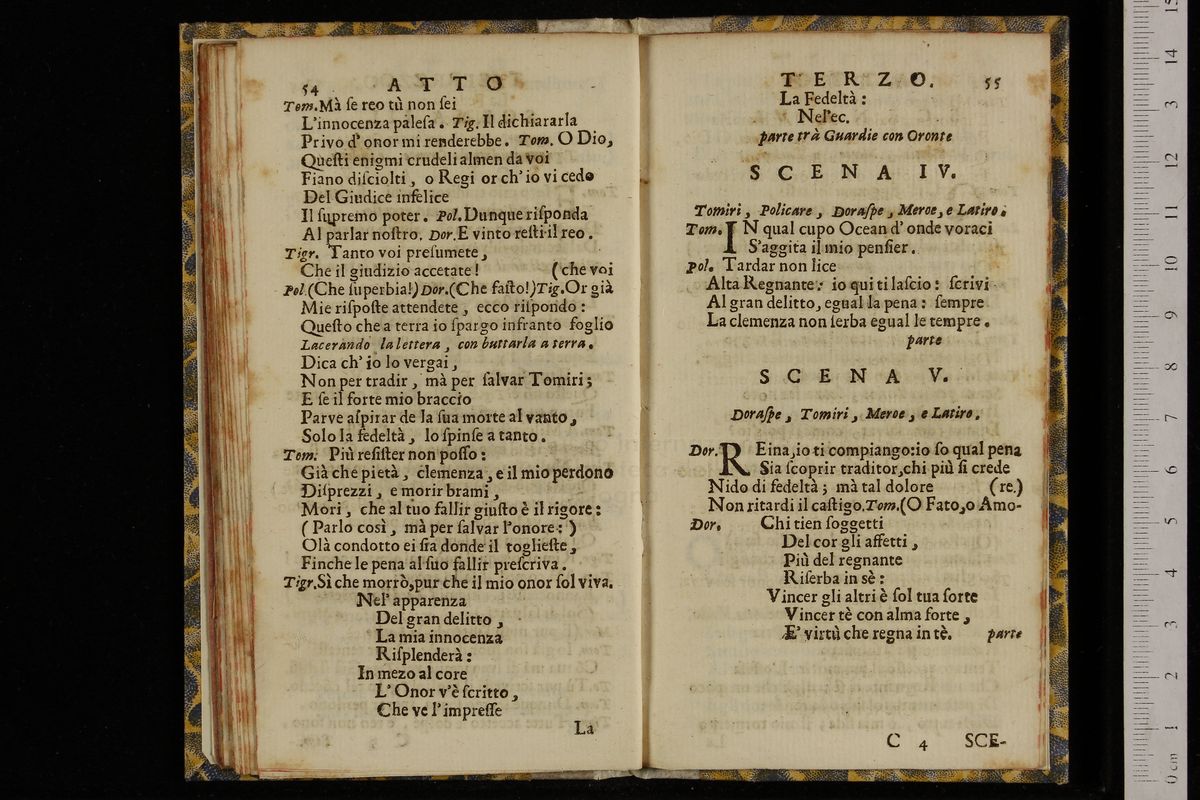 54 ATTO
Tom. Mà ſe reo tù non ſei
L'innocenza paleſa. Tig. Il dichiararla
Privo d'onor mi renderebbe. Tom. O Dio,
Queſti enigmi crudeli almen da voi
Fiano diſciolti, o Regi or ch'io vi cedo
Del Giudice infelice
Il ſupremo poter. Pol. Dunque riſponda
Al parlar noſtro. Dor. E vinto reſti il reo.
Tigr. Tanto voi preſumete,
Che il giudizio accetate! (che voi
Pol. (Che ſuperbia!) Dor. (Che faſto!) Tig. Or già
Mie riſpoſte attendete, ecco riſpondo:
Queſto che a terra io ſpargo infranto foglio
Lacerando la lettera, con buttarla a terra.
Dica ch'io lo vergai,
Non per tradir, mà per ſalvar Tomiri;
E ſe il forte mio braccio
Parve aſpirar de la ſua morte al vanto,
Solo la fedeltà, lo ſpinſe a tanto.
Tom. Più reſiſter non poſſo:
Già che pietà, clemenza, e il mio perdono
Diſprezzi, e morir brami,
Mori, che al tuo fallir giuſto è il rigore:
(Parlo così, mà per ſalvar l'onore: )
Olà condotto ei ſia donde il toglieſte,
Finche le pena al ſuo fallir preſcriva.
Tigr. Sì che morrò, pur che il mio onor ſol viva.
Nel' apparenza
Del gran delitto,
La mia innocenza
Riſplenderà:
In mezo al core
L'Onor v'è ſcritto,
Che ve l'impreſſe
La
TERZO. 55
La Fedeltà:
Nel'ec.
parte trà Guardie con Oronte
SCENA IV.
Tomiri, Policare, Doraſpe, Meroe, e Latiro.
Tom. IN qual cupo Ocean d'onde voraci
S'aggita il mio penſier.
Pol. Tardar non lice
Alta Regnante: io qui ti laſcio: ſcrivi
Al gran delitto, egual la pena: ſempre
La clemenza non ſerba egual le tempre.
parte
SCENA V.
Doraſpe, Tomiri, Meroe, e Latiro.
Dor. REina, io ti compiango: io ſo qual pena
Sia ſcoprir traditor, chi più ſi crede
Nido di fedeltà; mà tal dolore (re.)
Non ritardi il caſtigo. Tom. (O Fato, o Amo-
Dor. Chi tien ſoggetti
Del cor gli affetti,
Più del regnante
Riſerba in sè:
Vincer gli altri è ſol tua ſorte
Vincer tè con alma forte,
E' virtù che regna in tè. parte
C 4 SCE-